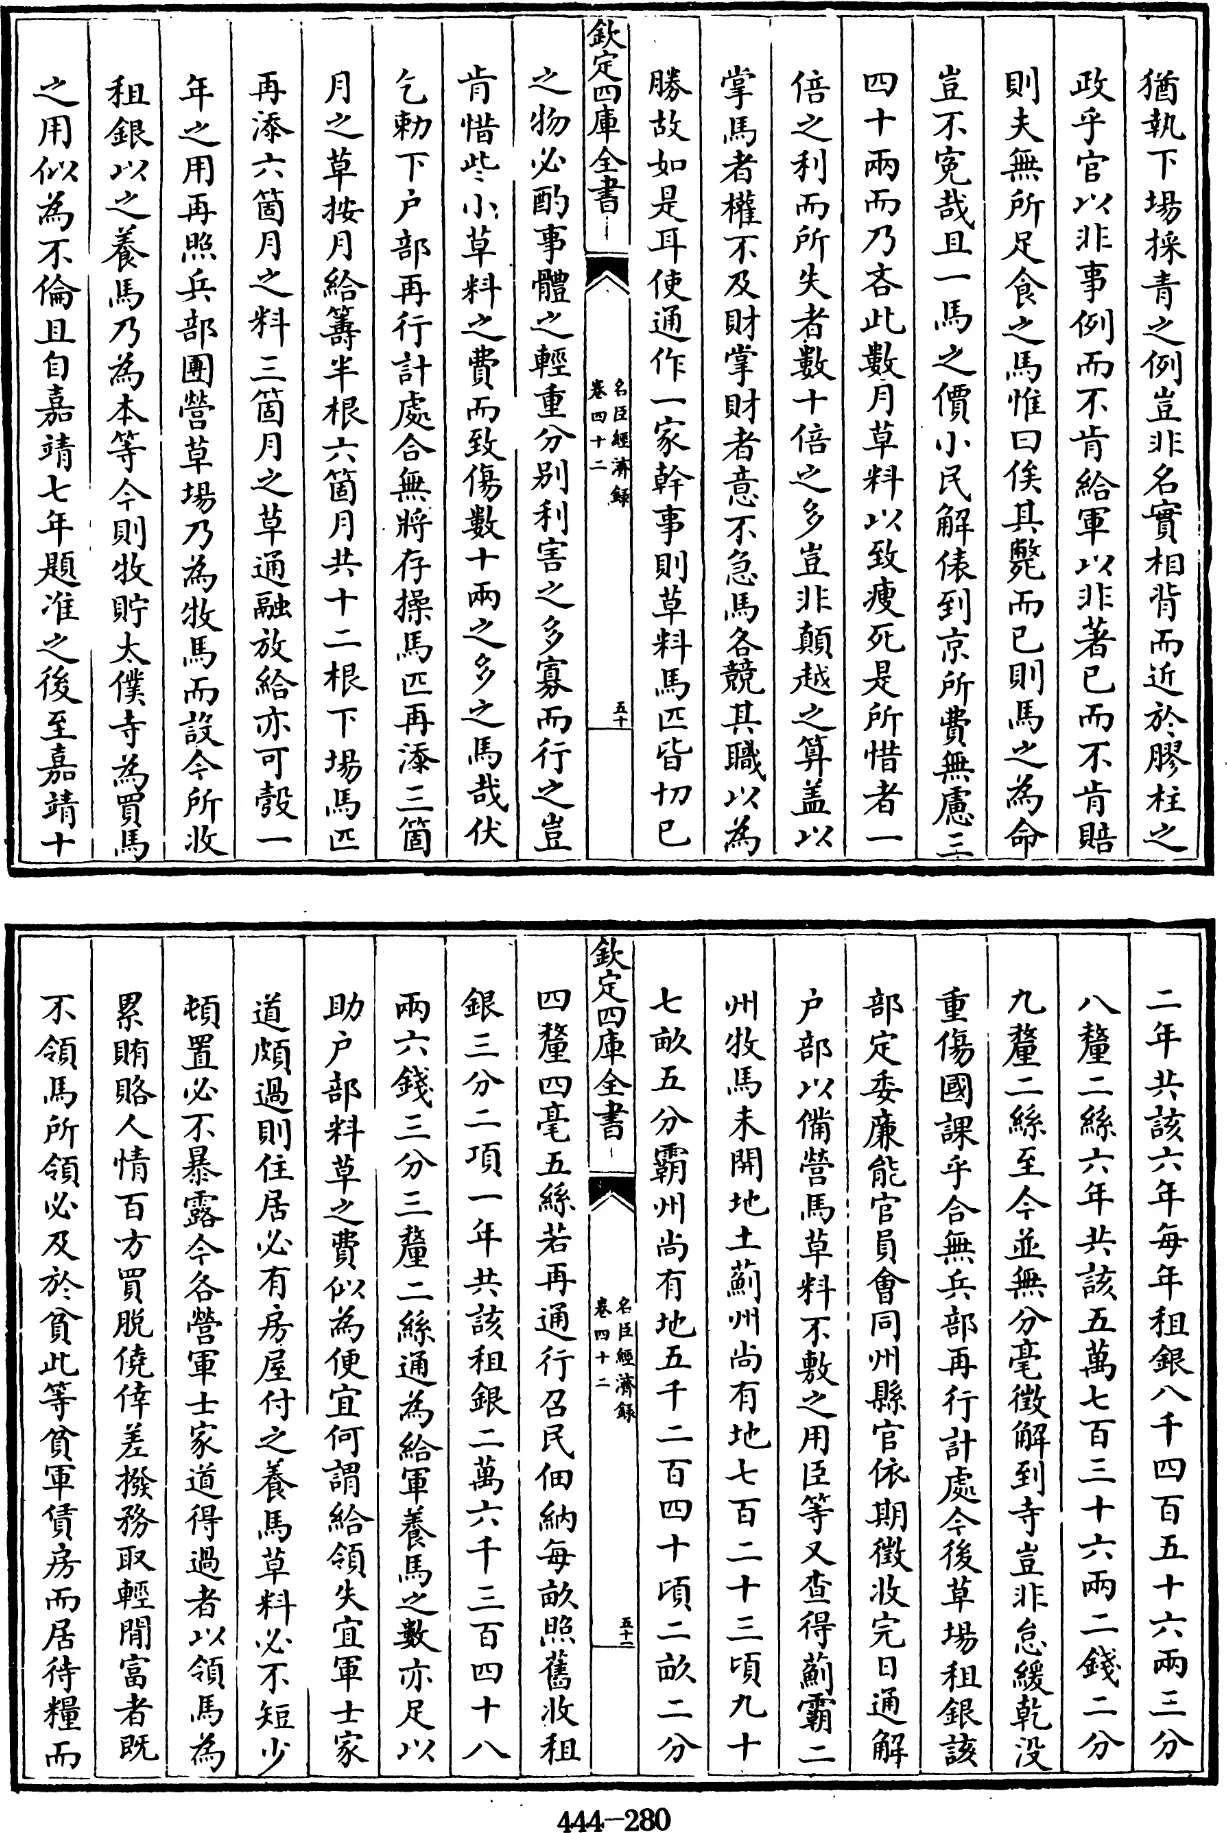 猶執下場採青之例豈非名實相背而近於膠柱之
政乎官以非事例而不肯給軍以非著已而不肯賠
則夫無所足食之馬惟曰俟其斃而已則馬之為命
豈不寃哉且一馬之價小民解俵到京所費無慮三
四十兩而乃吝此數月草料以致瘦死是所惜者一
倍之利而所失者數十倍之多豈非顛越之算盖以
掌馬者權不及財掌財者意不急馬各競其職以為
勝故如是耳使通作一家幹事則草料馬匹皆切已
欽定四庫全書
名臣經濟録
卷四十二
五十
之物必酌事體之輕重分别利害之多寡而行之豈
肯惜些小草料之費而致傷數十兩之多之馬哉伏
乞勅下户部再行計處合無將存操馬匹再添三箇
月之草按月給籌半根六箇月共十二根下場馬匹
再添六箇月之料三箇月之草通融放給亦可彀一
年之用再照兵部團營草場乃為牧馬而設今所收
租銀以之養馬乃為本等今則牧貯太僕寺為買馬
之用似為不倫且自嘉靖七年題准之後至嘉靖十
二年共該六年每年租銀八千四百五十六兩三分
八釐二絲六年共該五萬七百三十六兩二錢二分
九釐二絲至今並無分毫徵解到寺豈非怠緩乾没
重傷國課乎合無兵部再行計處今後草場租銀該
部定委廉能官員會同州縣官依期徵收完日通解
户部以備營馬草料不敷之用臣等又查得薊霸二
州牧馬未開地土薊州尚有地七百二十三頃九十
七畝五分霸州尚有地五千二百四十頃二畝二分
欽定四庫全書
名臣經濟録
卷四十二
五十一
四釐四毫五絲若再通行召民佃納每畝照舊收租
銀三分二項一年共該租銀二萬六千三百四十八
兩六錢三分三釐二絲通為給軍養馬之數亦足以
助户部料草之費似為便宜何謂給領失宜軍士家
道頗過則住居必有房屋付之養馬草料必不短少
頓置必不暴露今各營軍士家道得過者以領馬為
累賄賂人情百方買脱僥倖差撥務取輕閒富者既
不領馬所領必及於貧此等貧軍賃房而居待糧而
444-280